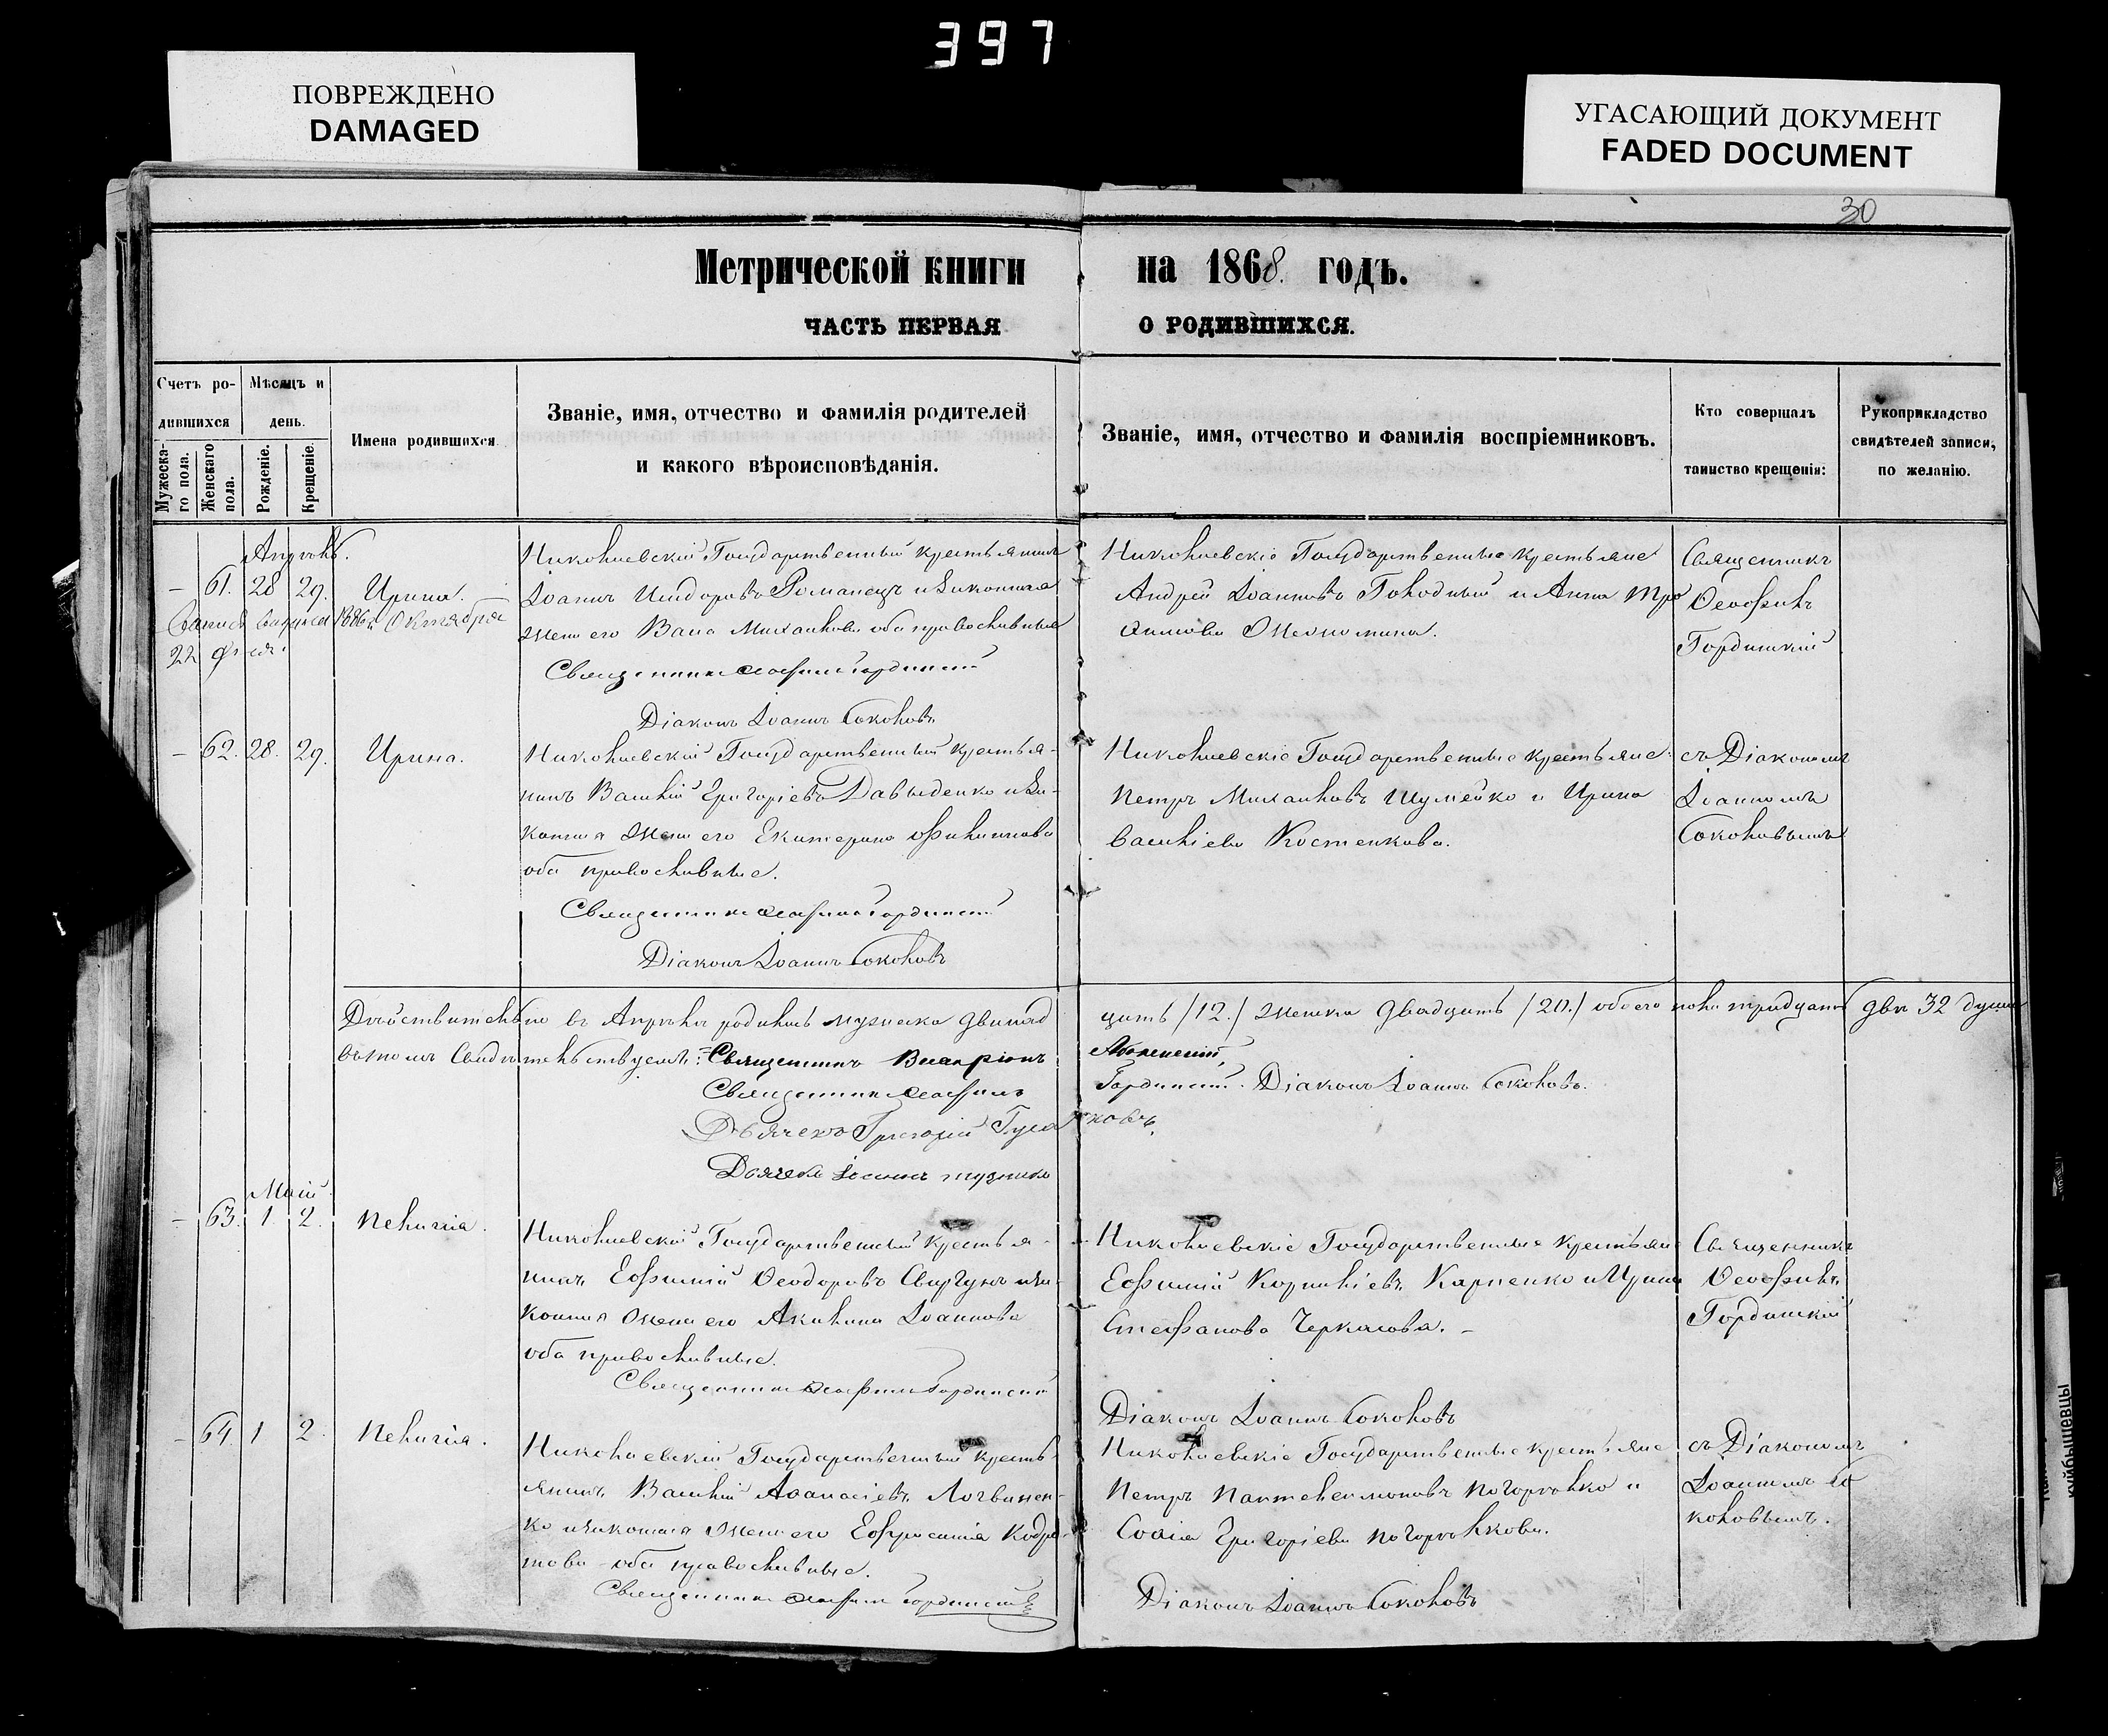 397
ПОВРЕЖДЕНО
DAMAGED
УГАСАЮЩИЙ ДОКУМЕНТ
FADED DOCUMENT
30
Метрической книги на 1868. годъ.
ЧАСТЬ ПЕРВАЯ О РОДИВШИХСЯ.
Счетъ ро-
дившихся
Мужеска-
го пола.
Женскаго
пола.
Мѣсяцъ и
день.
Рожденіе.
Крещеніе.
Имена родившихся
Званіе, имя, отчество и фамилія родителей
и какого вѣроисповѣданія.
Званіе, имя, отчество и фамилія воспріемниковъ.
Кто совершалъ
таинство крещенія:
Рукоприкладство
свидѣтелей записи,
по желанію.
Апрѣль.
– 61. 28 29. Ирина.
22
Октября
Николаевскій Государственный крестьянинъ
Іоаннъ Исидоровъ Романецъ и законная
жена его Васа Михаилова оба православные
Священникъ Ѳеофилъ Гординскій
Діаконъ Іоаннъ Соколовъ
Николаевскіе Государственные крестьяне
Андрей Іоанновъ Голодный и Анна Тро
фимова
Священникъ
Ѳеофилъ
Гординскій
– 62. 28. 29. Ирина.
Николаевскій Государственный крестья-
нинъ Василій Григоріевъ Давыденко и за-
конная жена его Екатерина Филиппова
оба православные.
Священникъ Ѳеофилъ Гординскій
Діаконъ Іоаннъ Соколовъ
Николаевскіе Государственные крестьяне
Петръ Михаиловъ Шумейко и Ирина
Василіева Костенкова.
съ Діакономъ
Іоанномъ
Соколовымъ
Дѣйствительно въ Апрѣлѣ родилось мужеска двѣнад
цать /12./ женска двадцать /20./ обоего пола тридцать двѣ 32 души
въ томъ Свидѣтельствуемъ: Священникъ Виссаріонъ
Священникъ Ѳеофилъ Гординскій. Діаконъ Іоаннъ Соколовъ.
Дьячекъ Григорій Гусаковъ.
Дьячекъ Іоаннъ
Май
– 63. 1. 2. Пелагія.
Николаевскій Государственный крестья-
нинъ Евфимій Ѳеодоровъ Свиргунъ и за-
конная жена его Акилина Іоаннова
оба православные.
Священникъ Ѳеофилъ Гординскій
Николаевскіе Государственные крестьяне
Евфимій Корниліевъ Карпенко и Ирина
Стефанова Черкасова. –
Діаконъ Іоаннъ Соколовъ
Священникъ
Ѳеофилъ
Гординскій
– 64. 1 2 Пелагія.
Николаевскій Государственный кресть-
янинъ Василій Аѳанасіевъ Логвинен-
ко и законная жена его Евфросинія Кодра-
това оба православные.
Священникъ Ѳеофилъ Гординскій
Николаевскіе Государственные крестьяне
Петръ Пантелеимоновъ Погорѣлко и
Софія Григоріева Погорѣлкова.
Діаконъ Іоаннъ Соколовъ
съ Діакономъ
Іоанномъ Со
коловымъ.
куйбышевцы